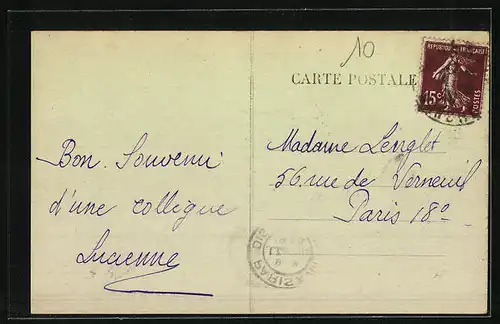 10
CARTE POSTALE
REPUBLIQUE FRANCAISE
15c
POSTES
Bon Souvenir
d'une collègue
Lucienne
Madame Lenglet
56 rue de Verneuil
Paris 18e
PARIS